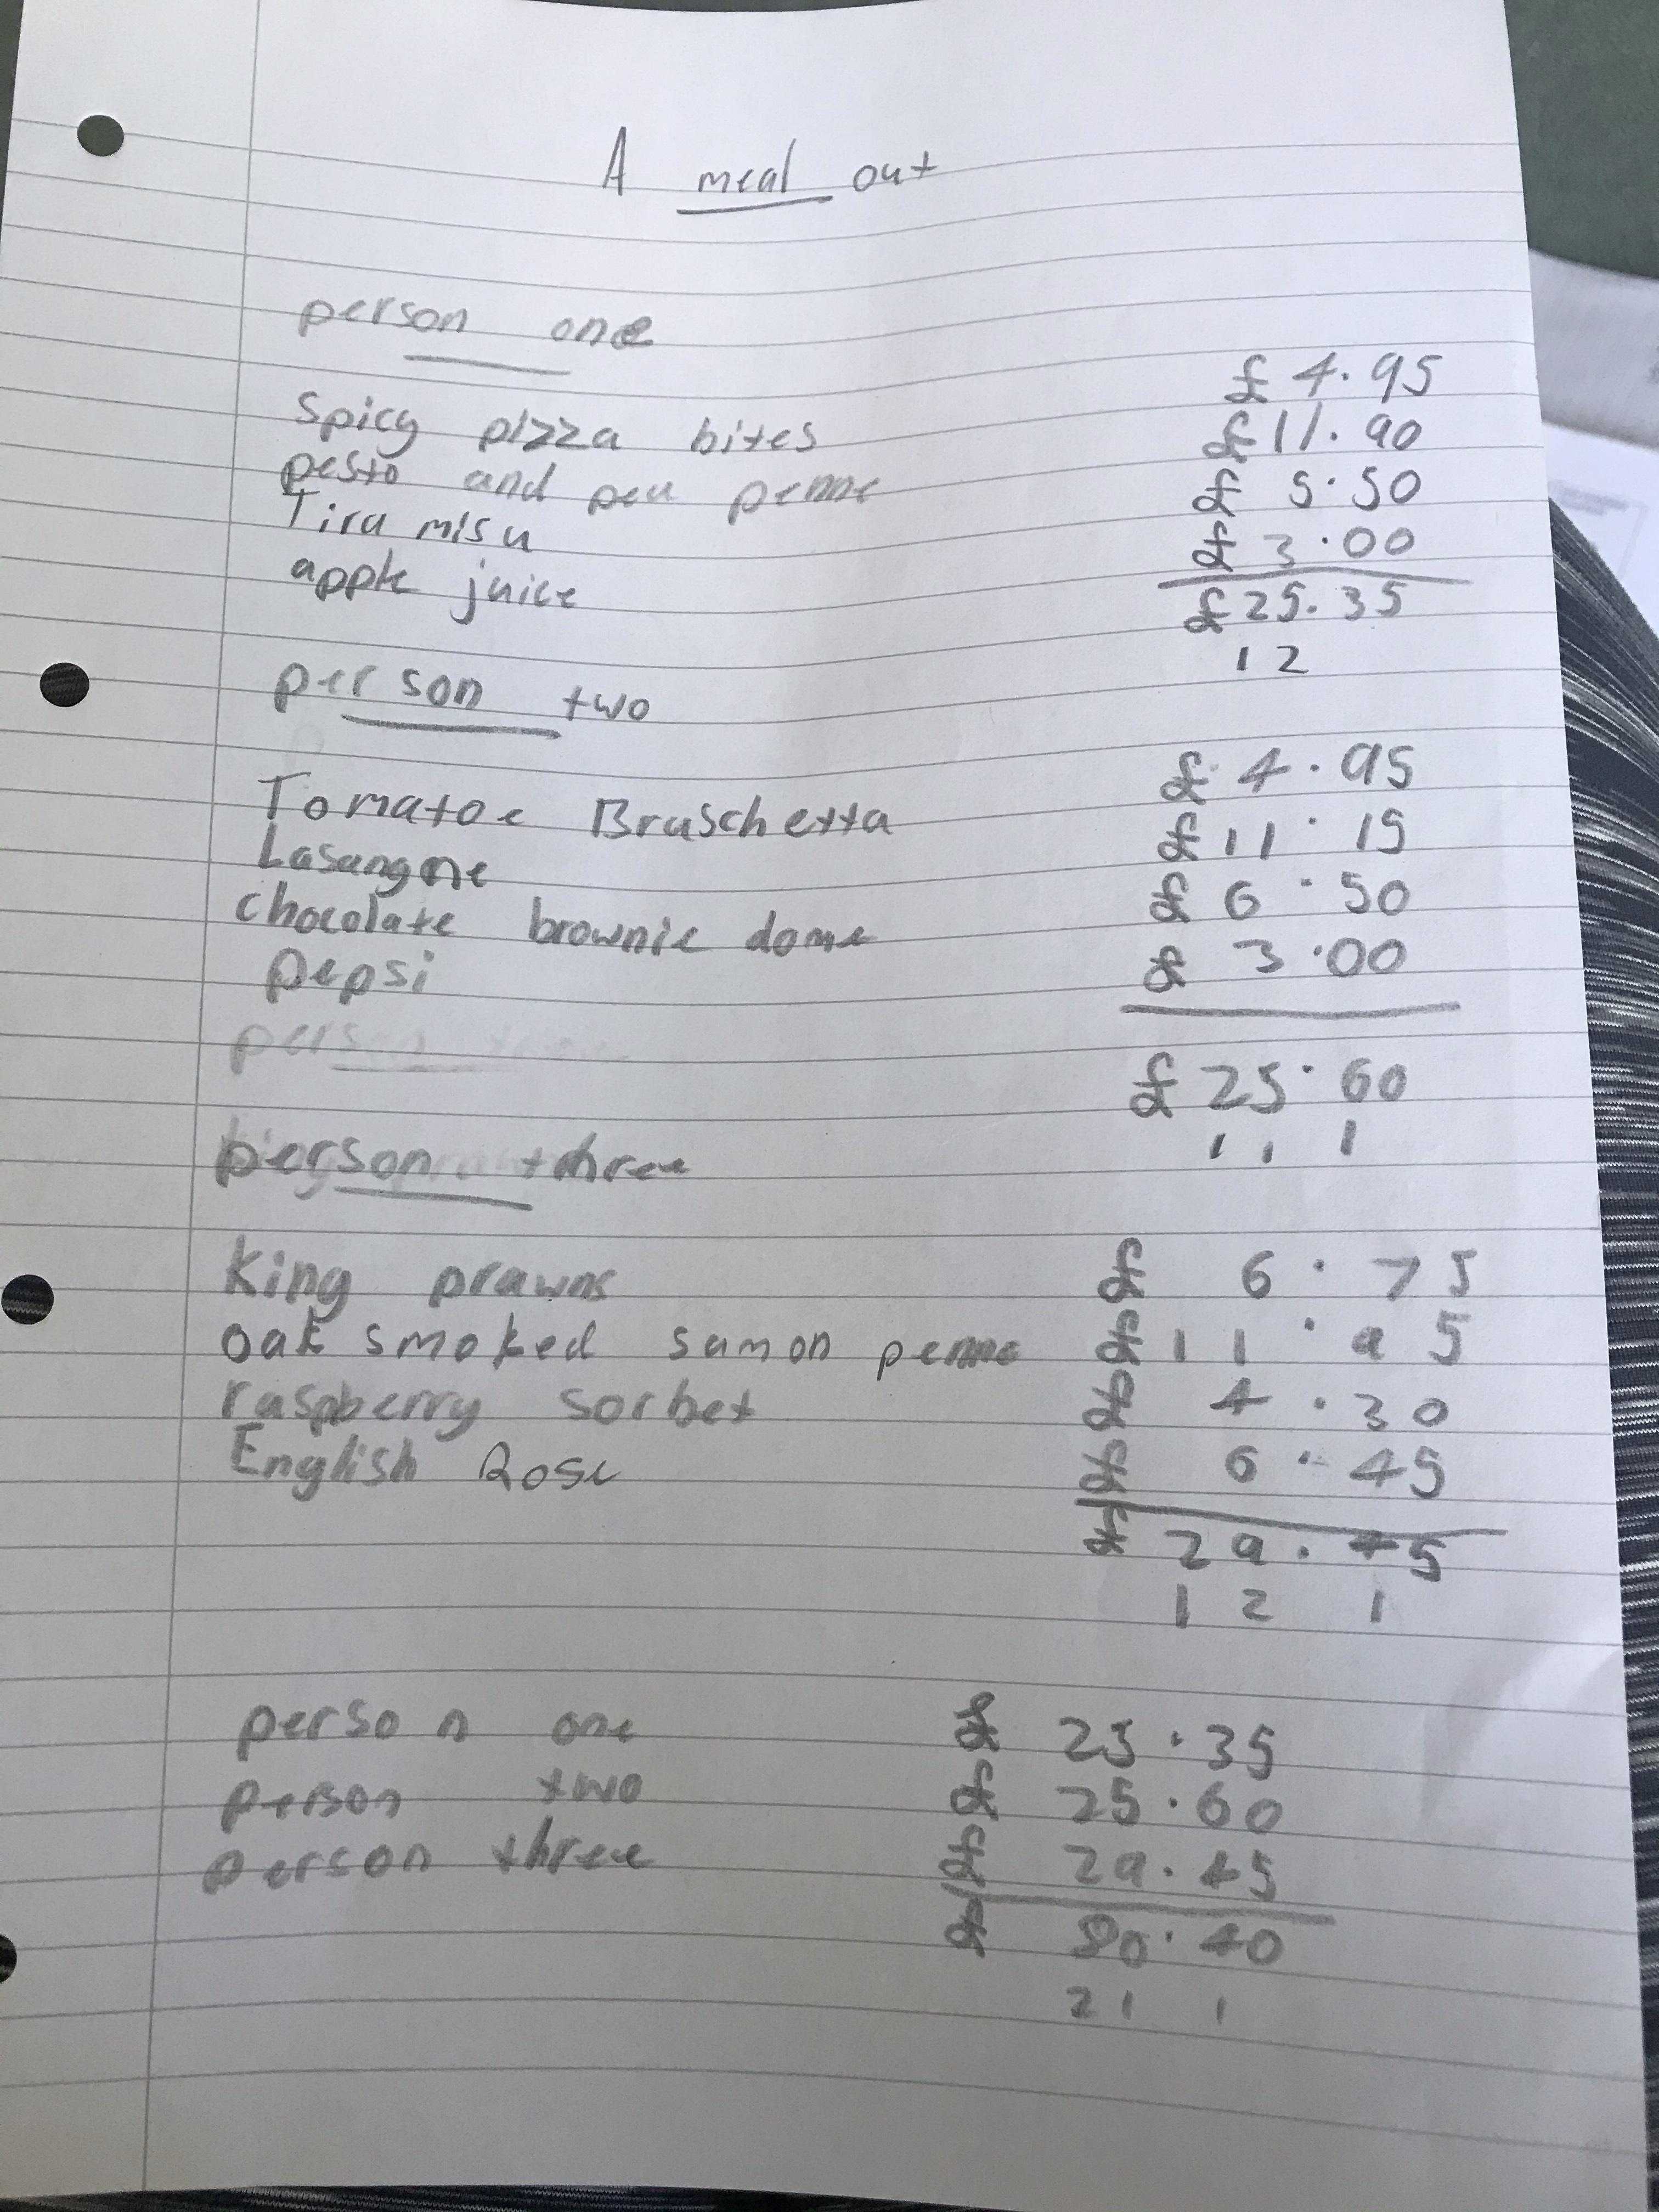 A meal out
person one
Spicy pizza bites £4.95
pesto and pea penne £11.90
Tira misu £5.50
apple juice £3.00
£25.35
1 2
person two
Tomatoe Bruschetta £4.95
Lasangne £11.15
chocolate brownie dome £6.50
pepsi £3.00
person three
£25.60
1 1 1
person three
King prawns £6.75
oak smoked samon penne £11.95
raspberry sorbet £4.30
English Rose £6.45
£29.45
1 2 1
person one £25.35
person two £25.60
person three £29.45
£80.40
2 1 1